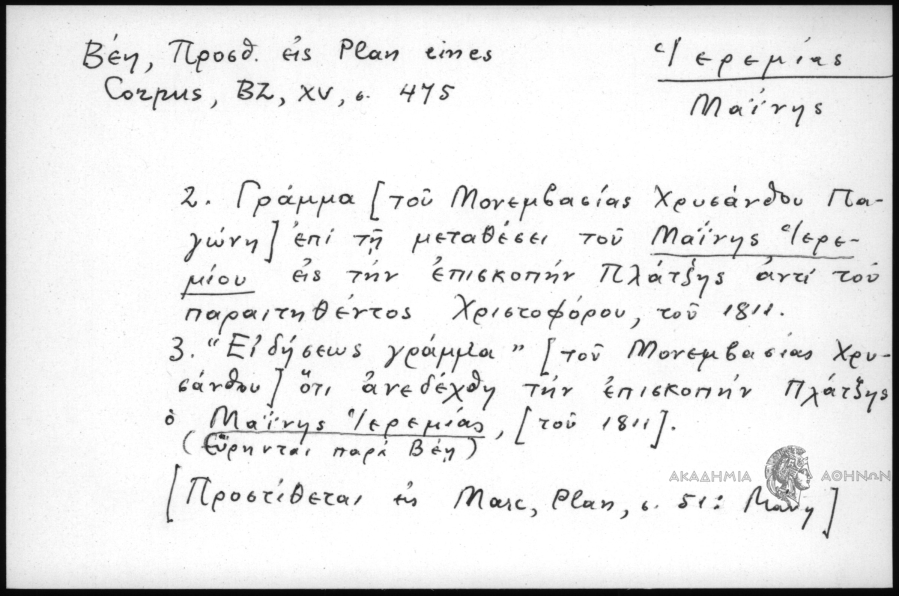 Βέη, Προσθ. εἰς Plan eines
Corpus, BZ, XV, σ. 475
Ἱερεμίας
Μαΐνης
2. Γράμμα [τοῦ Μονεμβασίας Χρυσάνθου Πα-
γώνη] ἐπί τῇ μεταθέσει τοῦ Μαΐνης Ἱερε-
μίου εἰς τήν ἐπισκοπήν Πλάτζης ἀντί τοῦ
παραιτηθέντος Χριστοφόρου, τοῦ 1811.
3. "Εἰδήσεως γράμμα" [τοῦ Μονεμβασίας Χρυ-
σάνθου] ὅτι ἀνεδέχθη τήν ἐπισκοπήν Πλάτζης
ὁ Μαΐνης Ἱερεμίας, [τοῦ 1811].
(Εὕρηνται παρά Βέῃ)
[Προστίθεται εἰς Marc, Plan, σ. 51: Μάνη]
ΑΚΑΔΗΜΙΑ ΑΘΗΝΩΝ